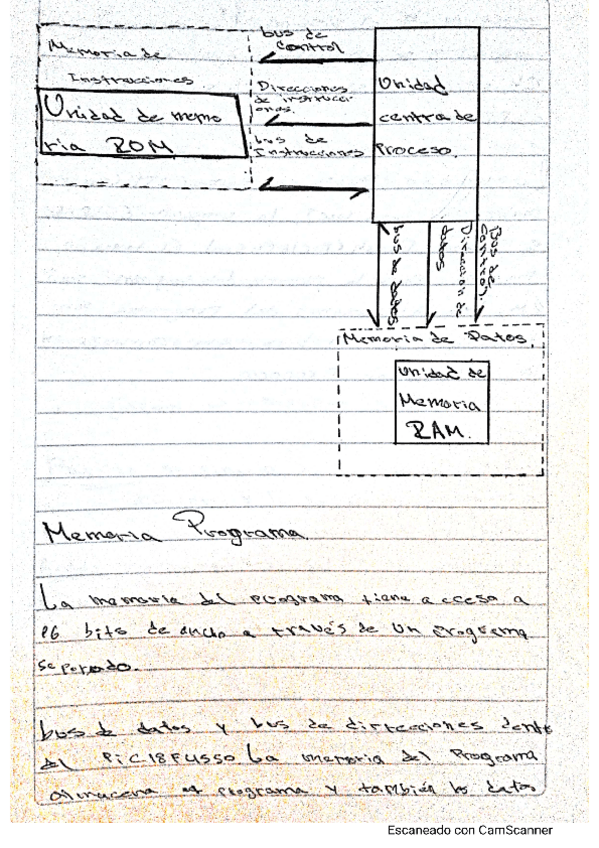 bus de
control
Memoria de
Instrucciones
Unidad de memo
ria ROM
Direcciones
de instrucci
ones.
bus de
Instrucciones
Unidad
centra de
Proceso.
bus de datos
Dirección de
datos
Bus de
Control.
Memoria de Datos.
Unidad de
Memoria
RAM.
Memoria Programa
La memoria del programa tiene acceso a
16 bits de ancho a través de un programa
separado.
bus de datos y bus de direcciones dentr
del PIC18F4550 La memoria del Programa
almacena el programa y también los datos
Escaneado con CamScanner